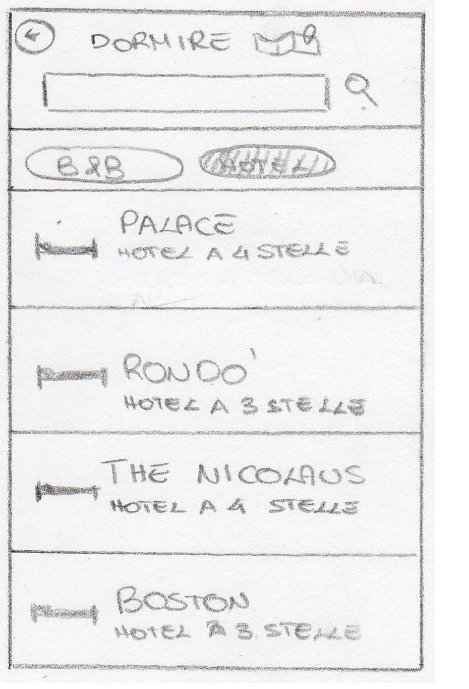 DORMIRE
B&B HOTEL
PALACE
HOTEL A 4 STELLE
RONDO'
HOTEL A 3 STELLE
THE NICOLAUS
HOTEL A 4 STELLE
BOSTON
HOTEL A 3 STELLE